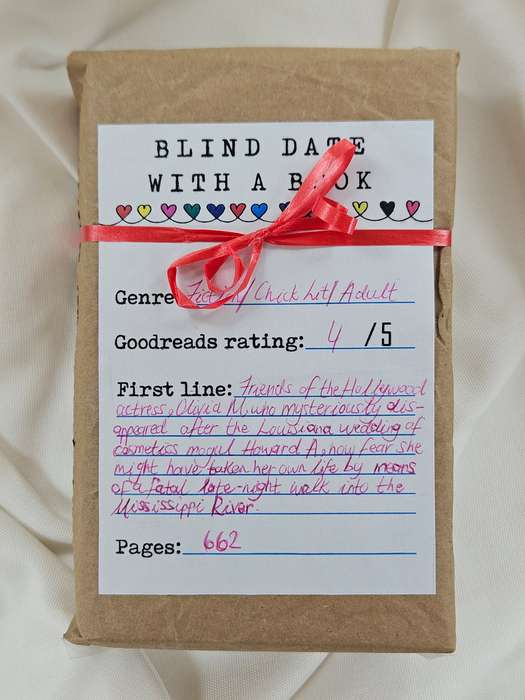 BLIND DATE
WITH A BOOK
Genre Fiction/ Chick Lit/ Adult
Goodreads rating: 4 /5
First line: Friends of the Hollywood
actress, Olivia Muno mysteriously dis-
appeared after the Louisiana wedding of
cosmetics mogul Howard A, now fear she
might have taken her own life by means
of a fatal late-night walk into the
Mississippi River.
Pages: 662